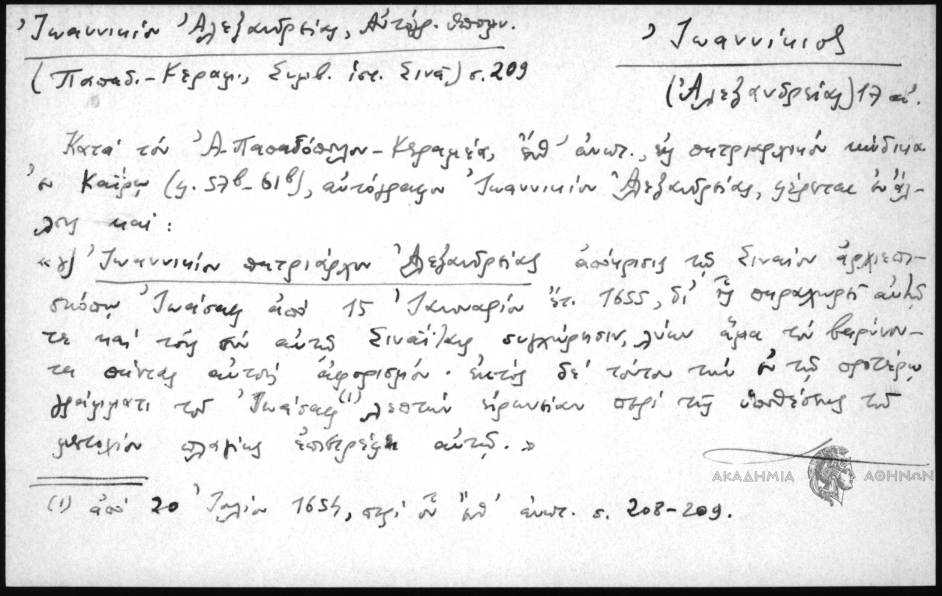 Ἰωαννικίου Ἀλεξανδρείας, Αὐτόγρ. ὑπόμν.
Ἰωαννίκιος
(Παπαδ.-Κεραμ., Συμβ. ἱστ. Σινᾶ) σ. 209
(Ἀλεξανδρείας) 17 αἰ.
Κατά τόν Ἀ. Παπαδόπουλον-Κεραμέα, ἔνθ' ἀνωτ., εἰς πατριαρχικόν κώδικα
ἐν Καΐρῳ (φ. 57β-61β), αὐτόγραφον Ἰωαννικίου Ἀλεξανδρείας, φέρεται ἐν ἄλ-
λοις καί:
«γ) Ἰωαννικίου πατριάρχου Ἀλεξανδρείας ἀπόκρισις τῷ Σιναίου ἀρχιεπι-
σκόπῳ Ἰωάσαφ ἀπό 15 Ἰανουαρίου ἔτ. 1655, δι' ἧς παραχωρεῖ αὐτῷ
τε καί τοῖς σύν αὐτῷ Σιναΐταις συγχώρησιν, λύων ἅμα τόν βαρύνον-
τα πάντας αὐτούς ἀφορισμόν· ἐκτός δέ τούτου τήν ἐν τῷ προτέρῳ
γράμματι τοῦ Ἰωάσαφ (1) λεπτήν εἰρωνείαν περί τῆς ὑποθέσεως τοῦ
μετοχίου πλαγίως ἐπιστρέφει αὐτῷ.»
ΑΚΑΔΗΜΙΑ ΑΘΗΝΩΝ
(1) ἀπό 20 Ἰουλίου 1654, περί οὗ ἔνθ' ἀνωτ. σ. 208-209.